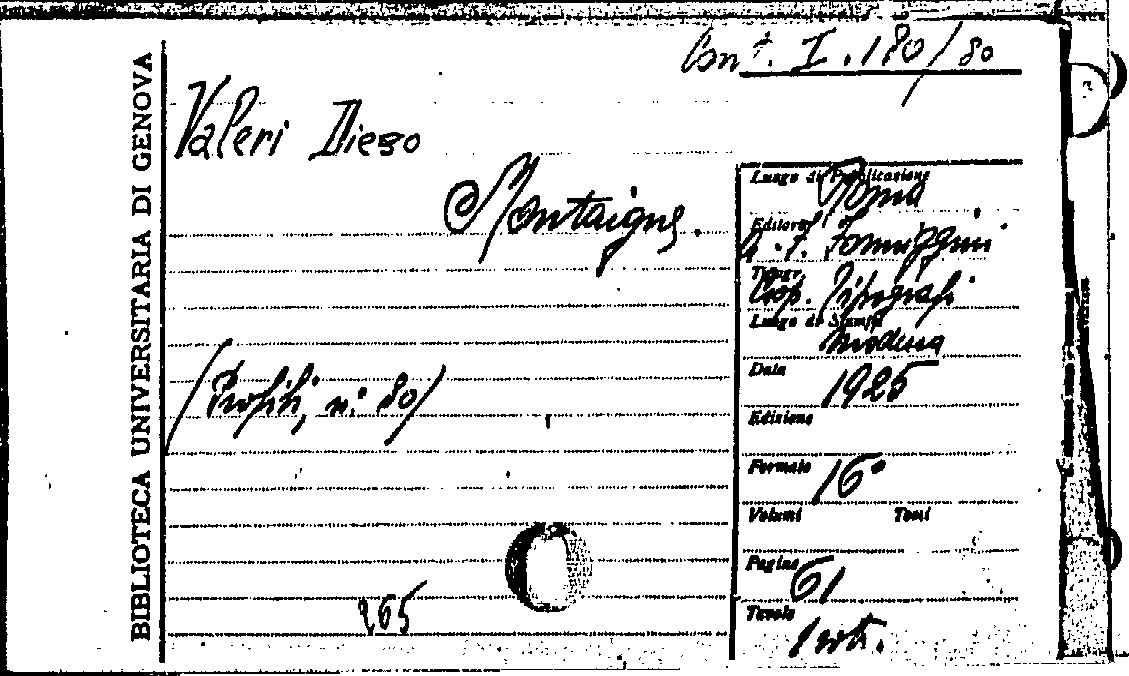 Cont. I. 180/80
BIBLIOTECA UNIVERSITARIA DI GENOVA
Valeri Diego
Montaigne.
(Profili, n.° 80)
265
Luogo di Pubblicazione Roma
Editore A. F. Formiggini
Tipogr. Coop. Tipografi
Luogo di Stampa Modena
Data 1925
Edizione
Formato 16°
Volumi Tomi
Pagine 61
Tavole 1 ritr.